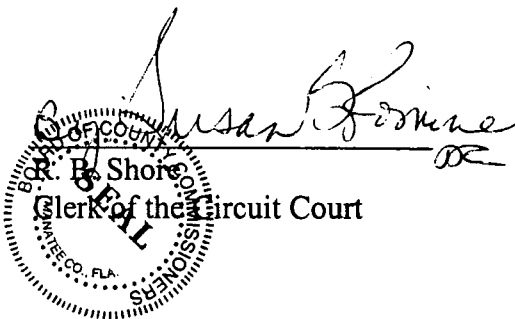 By Susan B. Romine
DC
R. B. Shore
Clerk of the Circuit Court
BOARD OF COUNTY COMMISSIONERS
SEAL
MANATEE CO., FLA.